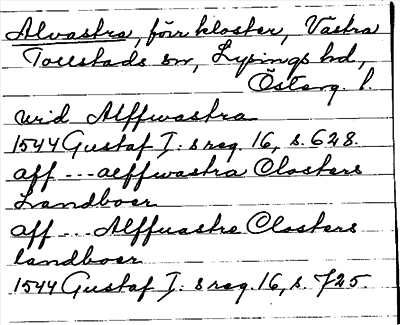 Alvastra, förr kloster, Västra
Tollstads sn, Lysings hd,
Österg. l.
wid Alffwastra
1544 Gustaf I:s reg. 16, s. 628.
aff --- alffwastra Closters
Landboer
aff --- Alffuastre Closters
landboer
1544 Gustaf I:s reg. 16, s. 725.